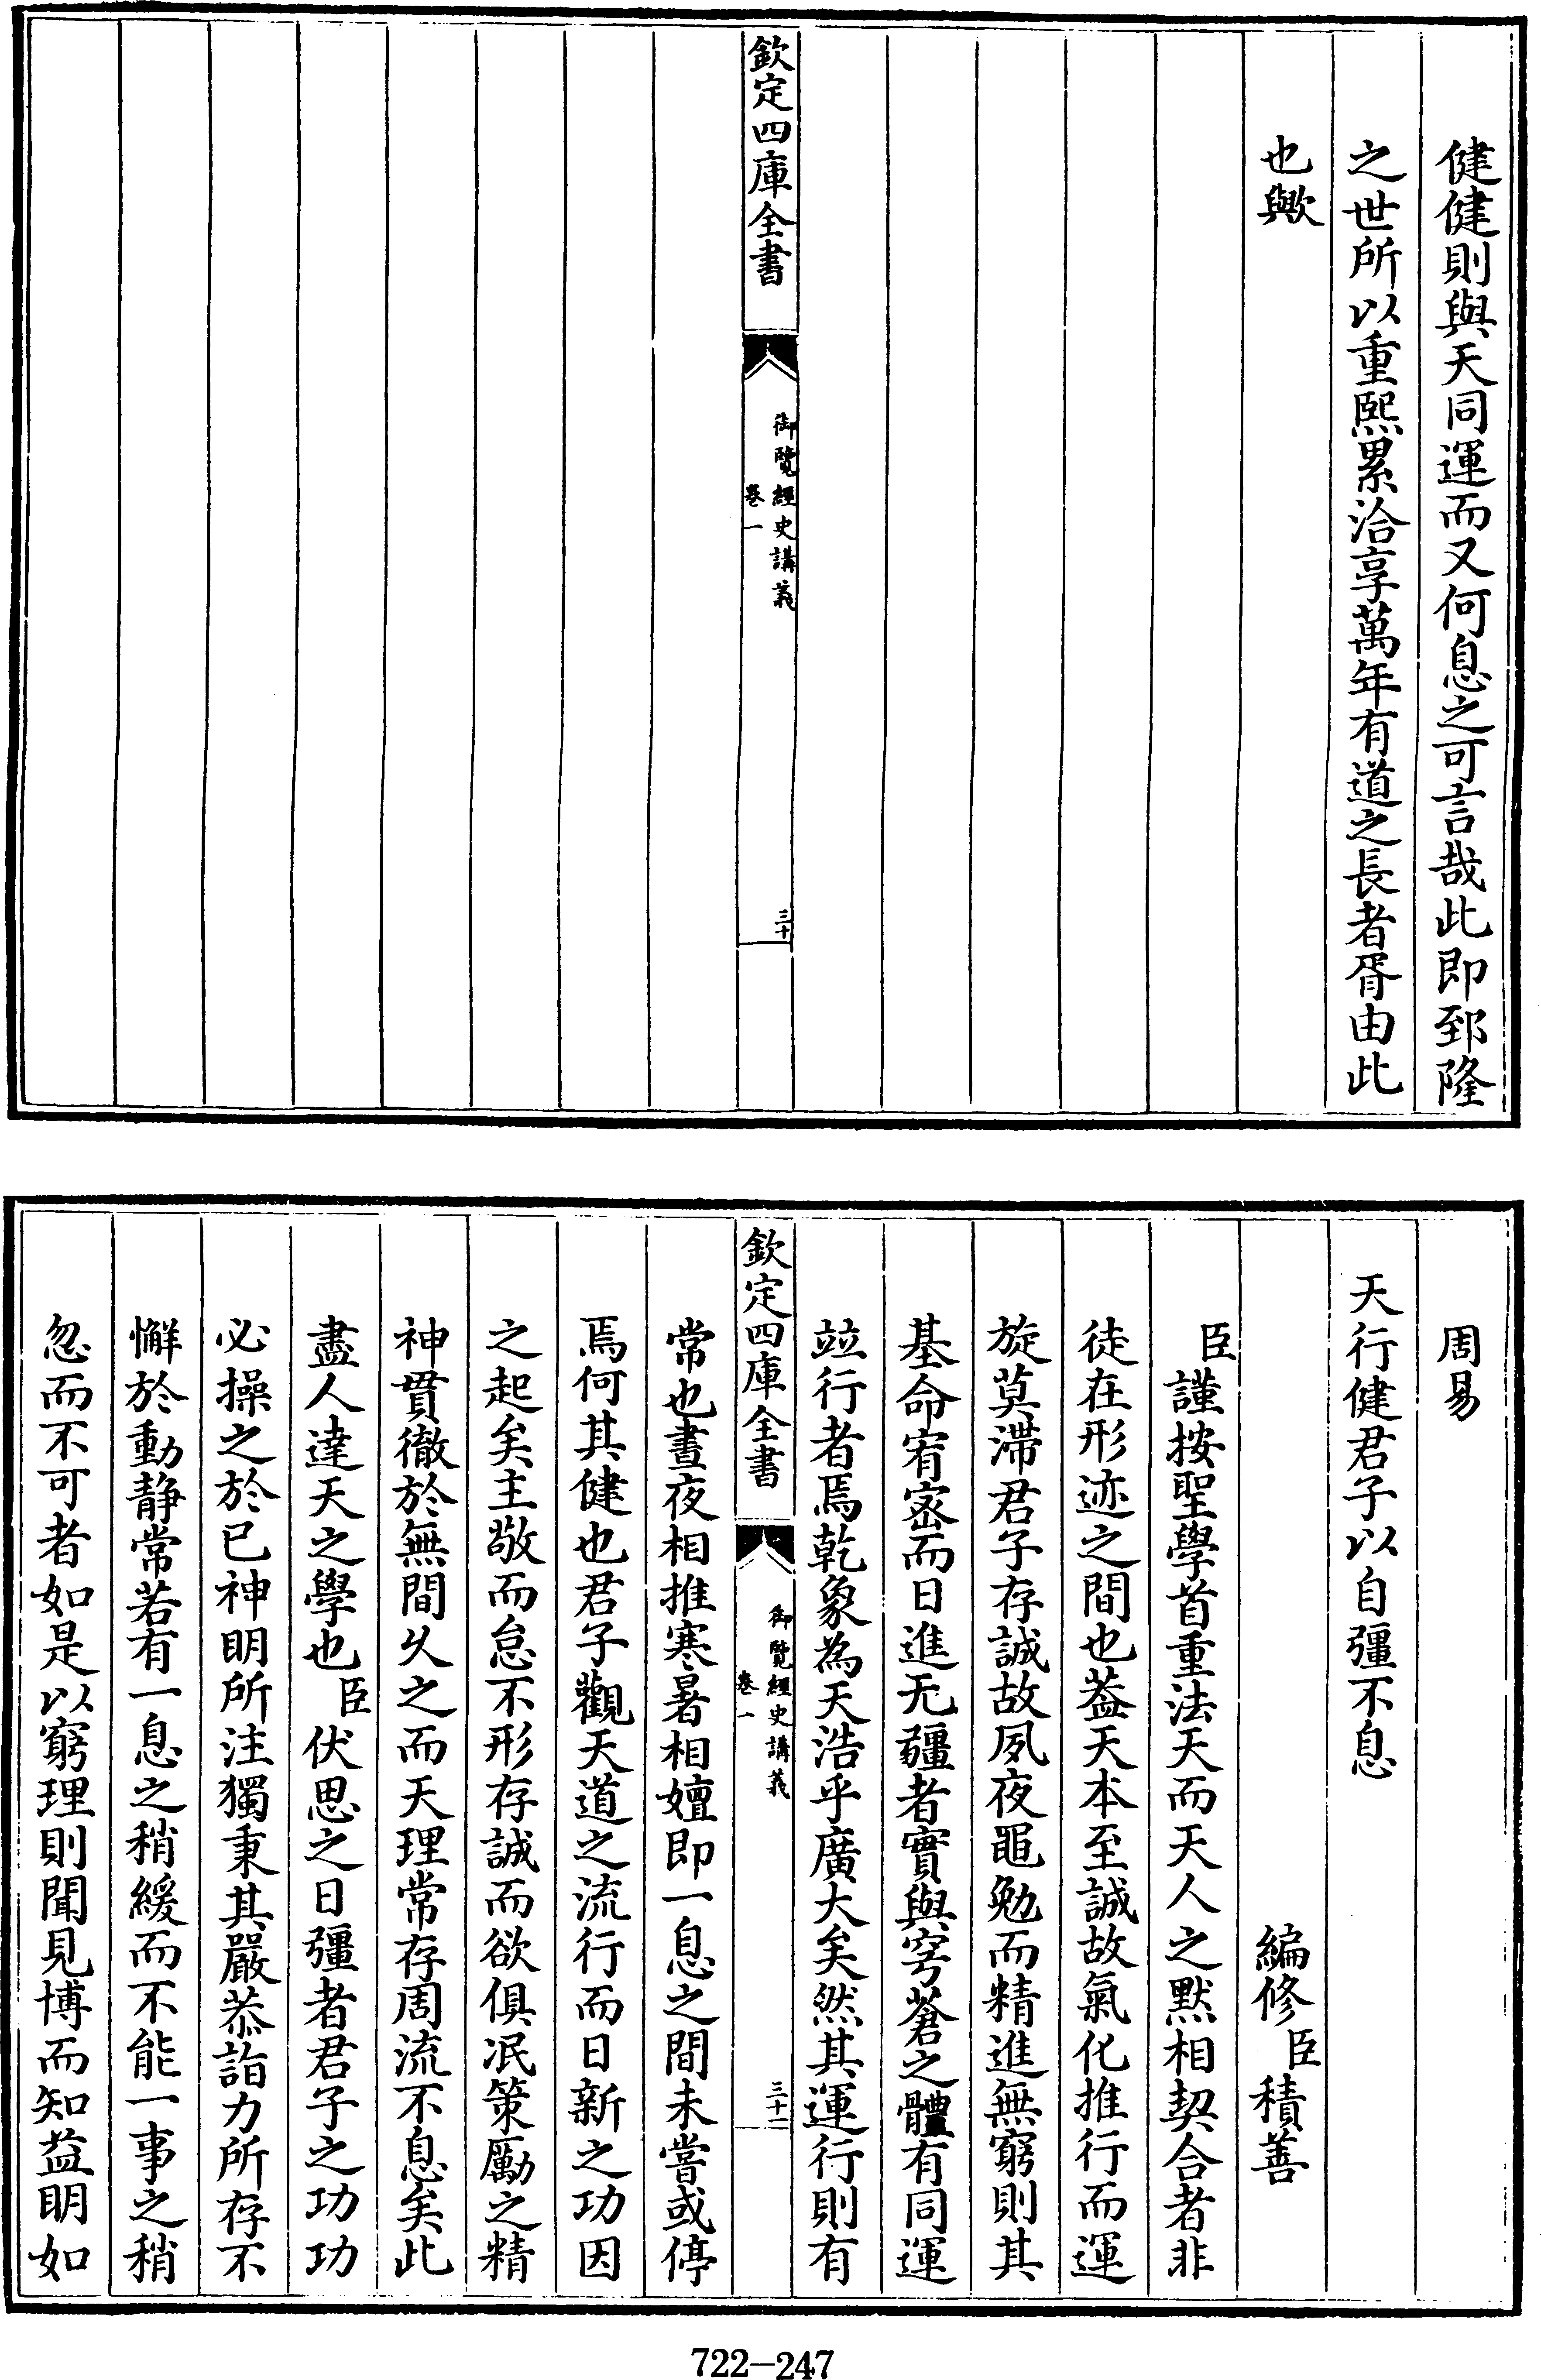 健健則與天同運而又何息之可言哉此即郅隆
之世所以重熙累洽享萬年有道之長者胥由此
也歟
欽定四庫全書
御覽經史講義
卷一
三十
周易
天行健君子以自彊不息
編修臣積善
臣謹按聖學首重法天而天人之默相契合者非
徒在形迹之間也葢天本至誠故氣化推行而運
旋莫滯君子存誠故夙夜黽勉而精進無窮則其
基命宥宻而日進无疆者實與穹蒼之體有同運
竝行者焉乾象為天浩乎廣大矣然其運行則有
欽定四庫全書
御覽經史講義
卷一
三十一
常也晝夜相推寒暑相嬗即一息之間未嘗或停
焉何其健也君子觀天道之流行而日新之功因
之起矣主敬而怠不形存誠而欲俱泯策勵之精
神貫徹於無間久之而天理常存周流不息矣此
盡人達天之學也臣伏思之日彊者君子之功功
必操之於已神明所注獨秉其嚴恭詣力所存不
懈於動静常若有一息之稍緩而不能一事之稍
忽而不可者如是以窮理則聞見博而知益明如
722-247